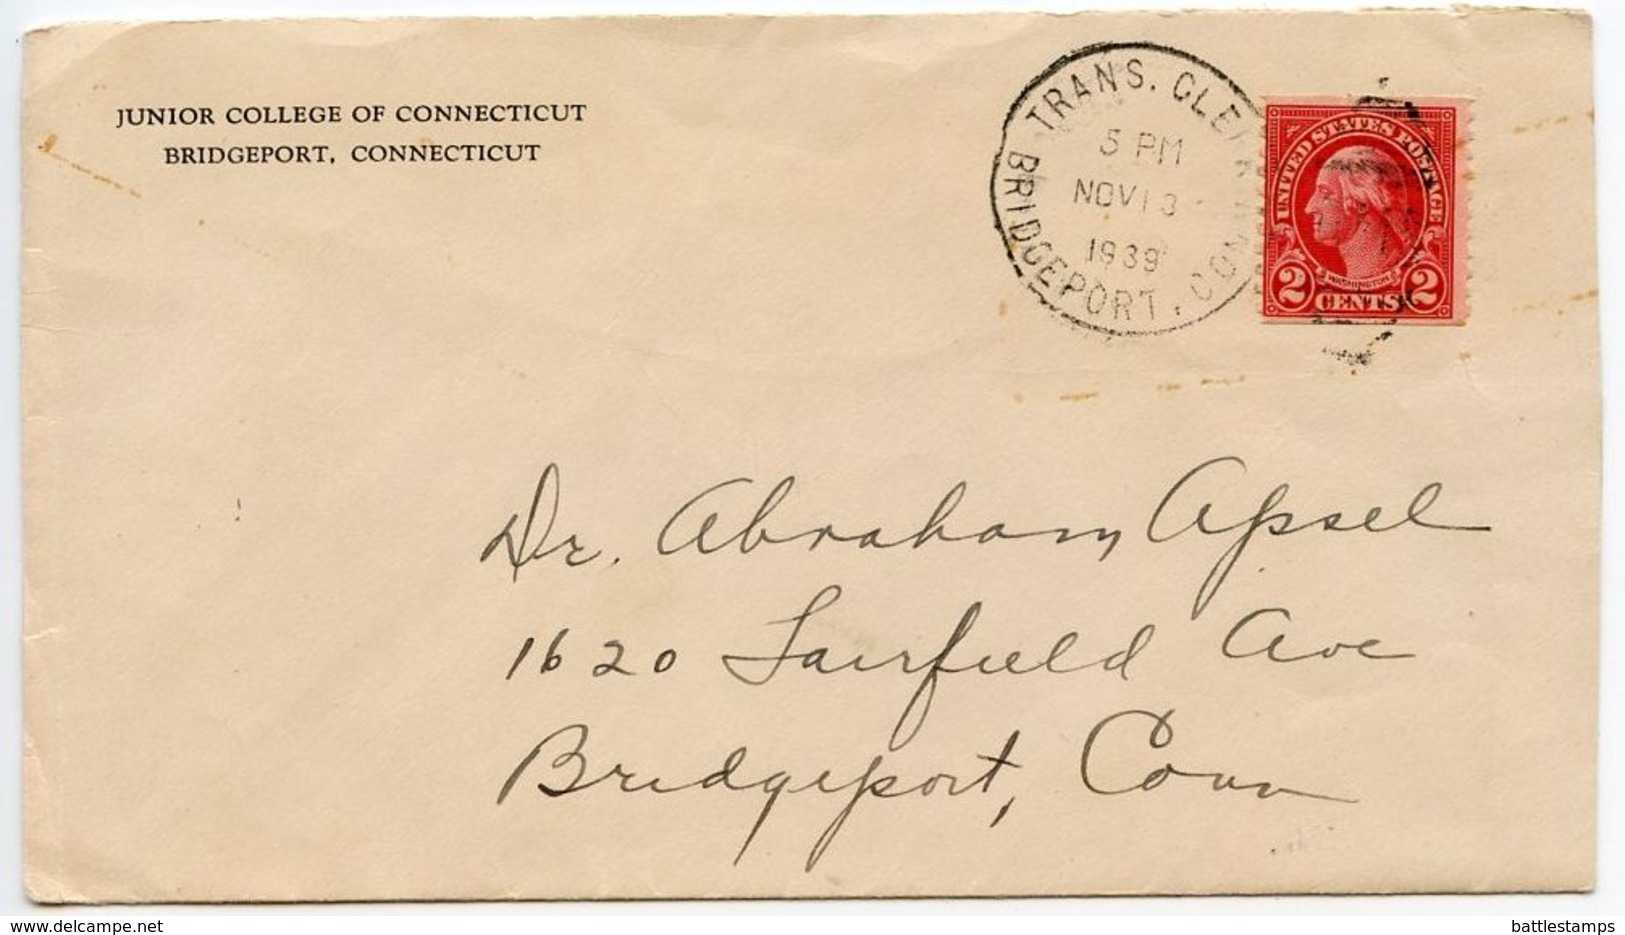 JUNIOR COLLEGE OF CONNECTICUT
BRIDGEPORT, CONNECTICUT
TRANS. CLERK
5 PM
NOV 13
1939
BRIDGEPORT, CONN.
UNITED STATES POSTAGE
WASHINGTON
2 CENTS 2
Dr. Abraham Apsel
1620 Fairfield Ave
Bridgeport, Conn
delcampe.net
battlestamps